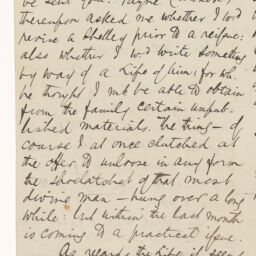 be sent you. Payne (
thereupon asked me whether I wd
revise a Shelley prior to a reissue;
also whether I wd write something
by way of a Life of him: for wh.
he thought I mt be able to obtain
from the family certain unpub-
lished materials. The thing – of
course I at once clutched at
the offer to unloose in any form
the shoelatchet of that most
divine man – hung over a long
while: but within the last month
is coming to a practical issue.
As regards the Life, it